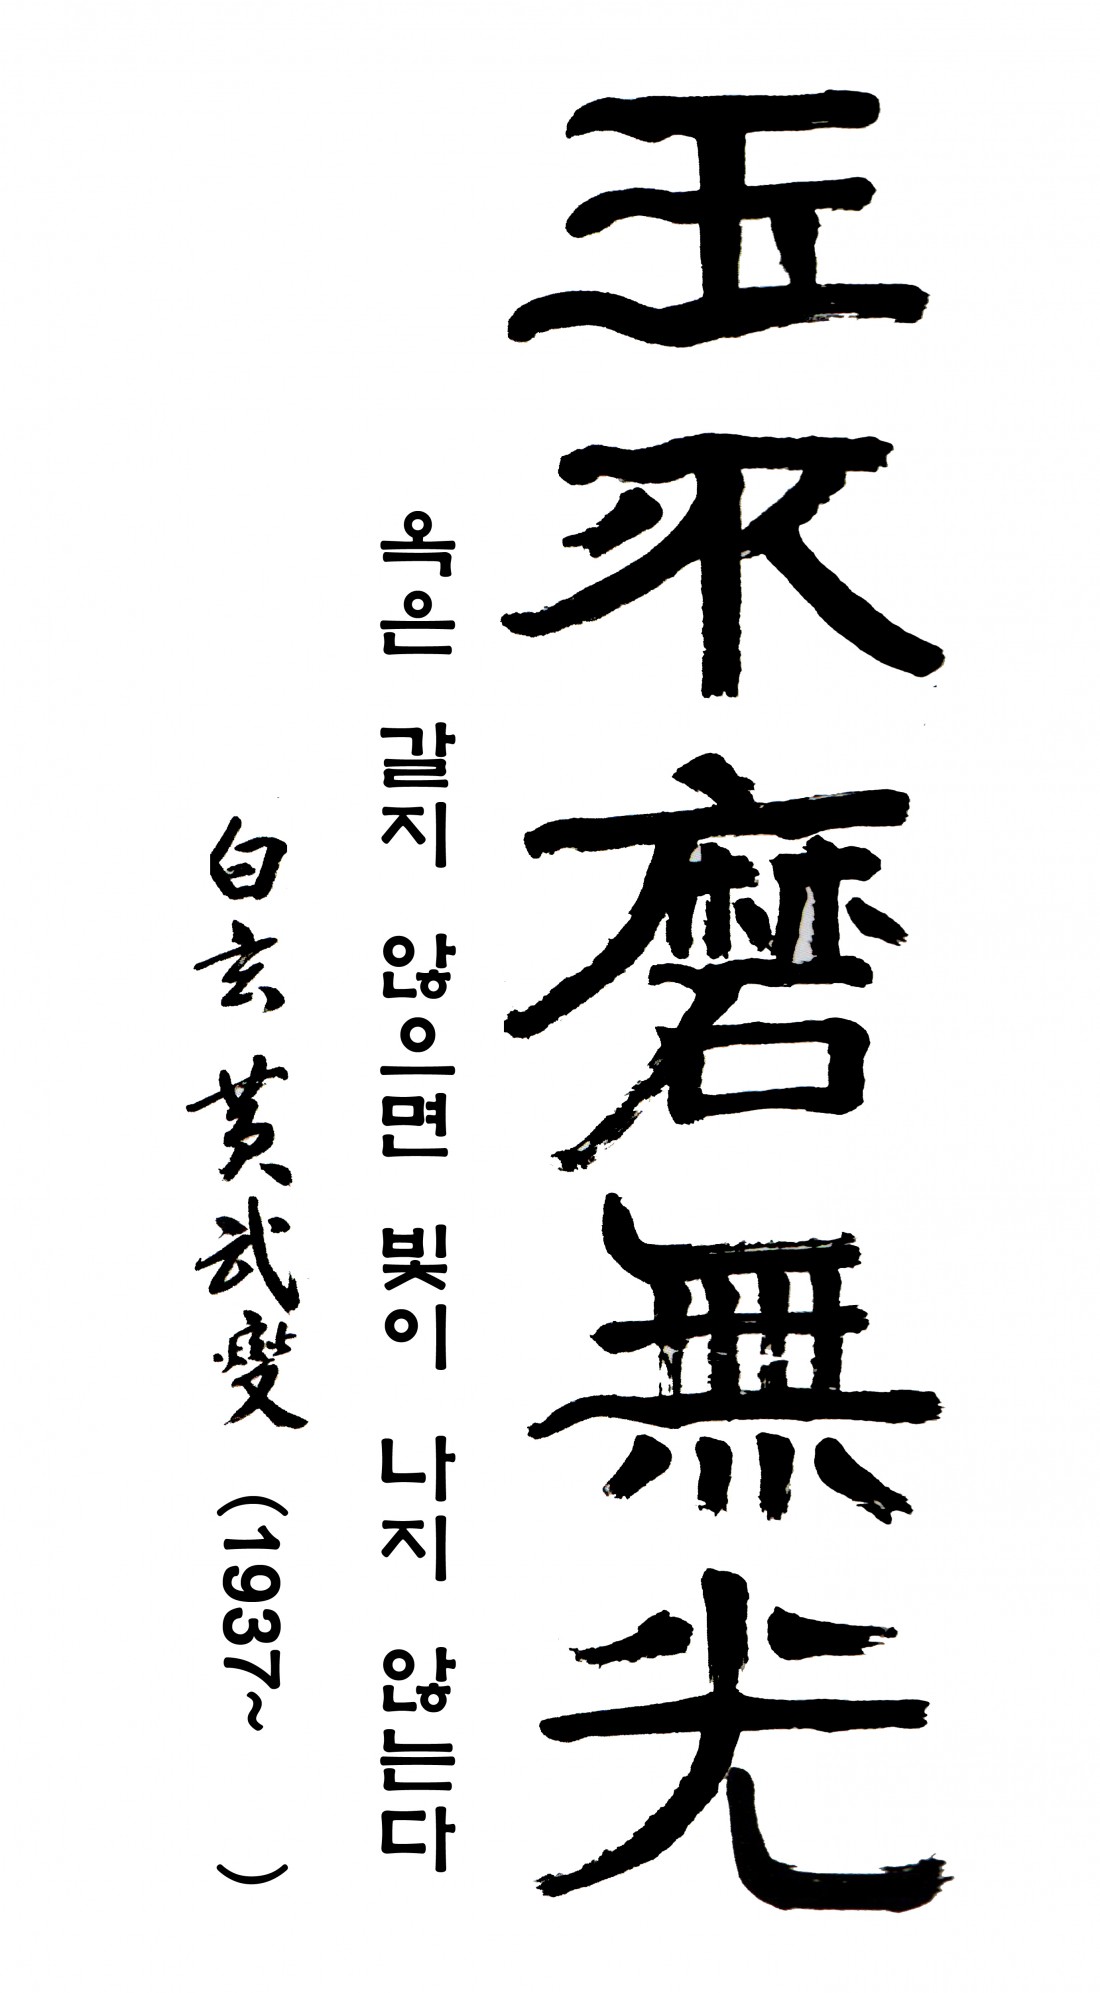 玉不磨無光
옥은 갈지 않으면 빛이 나지 않는다
白玄 黃武燮 (1937~ )